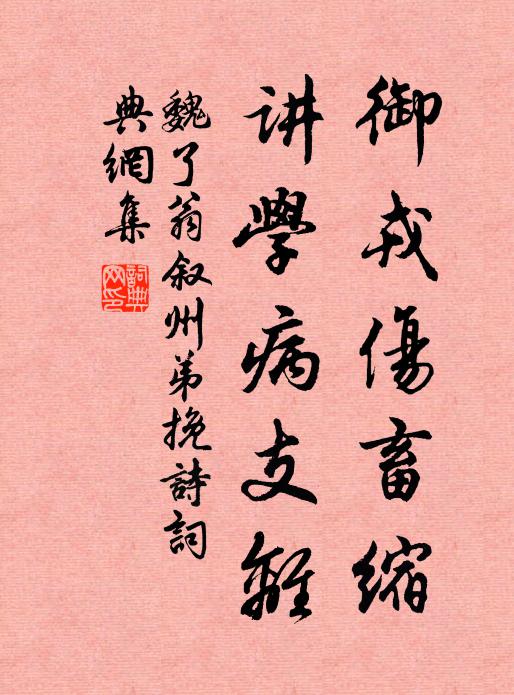 御戎傷畜縮
讲學病支離
魏了翁叙州弟挽詩詞
典網集
詞典網印